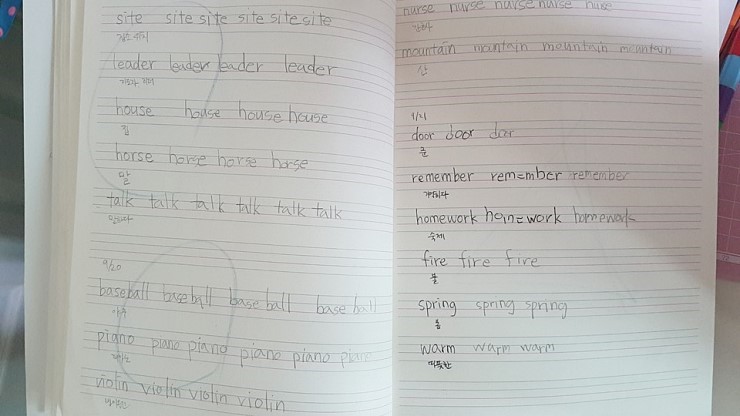 site site site site site site
leader leader leader leader
지도자 리더
house house house house
집
horse horse horse horse
말
talk talk talk talk talk talk
말하다
9/20
baseball baseball base ball base ball
야구
piano piano piano piano piano piano
피아노
violin violin violin violin
바이올린
nurse nurse nurse nurse nurse
mountain mountain mountain mountain
산
9/21
door door door
문
remember remember remember
기억하다
homework homework homework
숙제
fire fire fire
불
spring spring spring
봄
warm warm warm
따뜻한